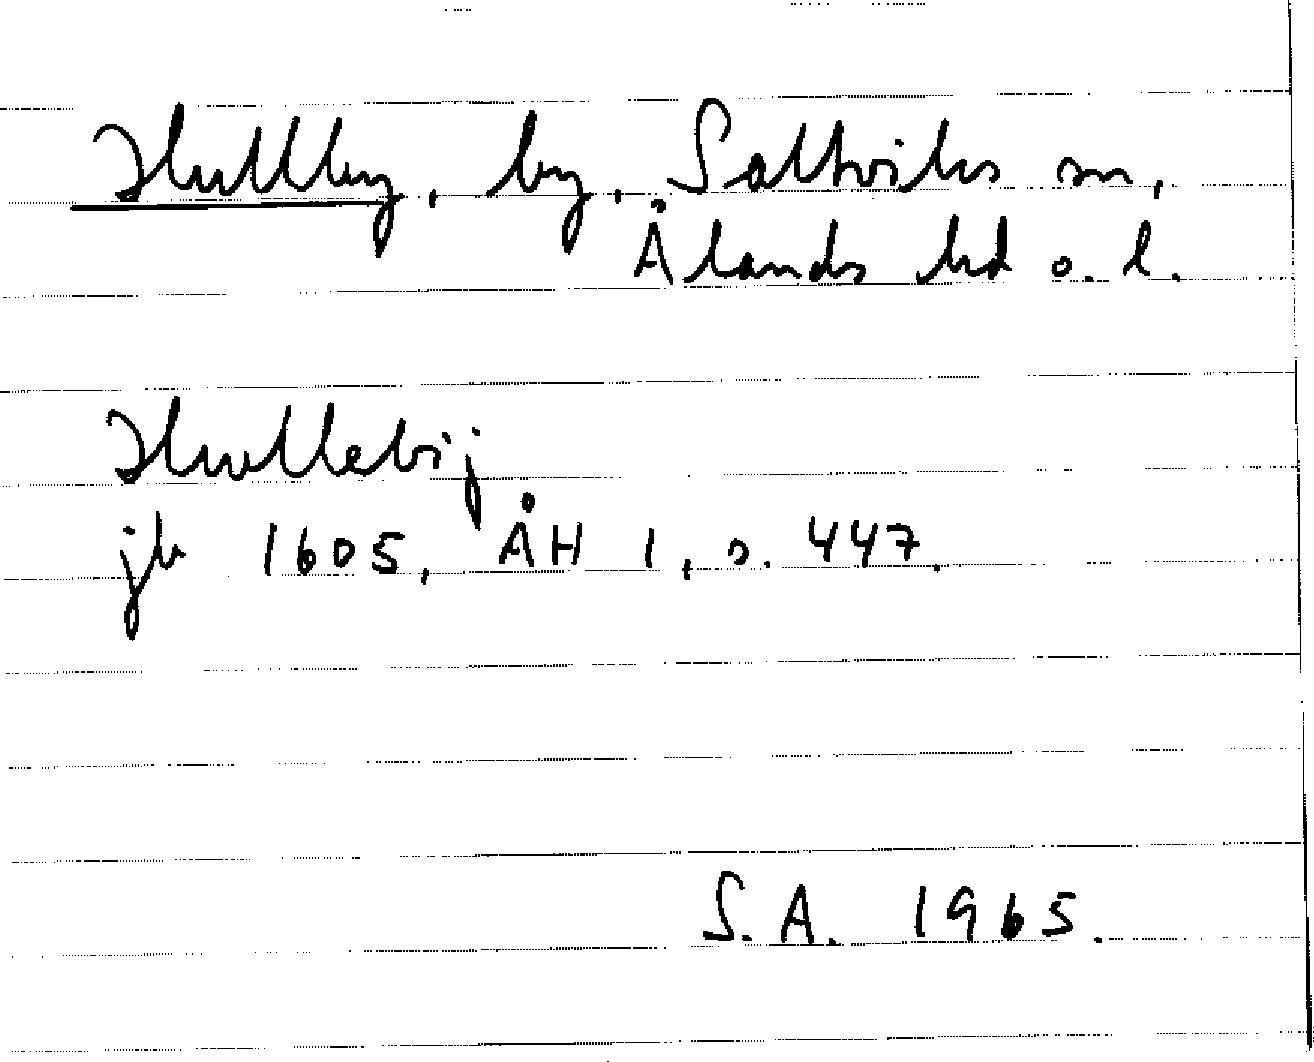 Hullby, by, Saltviks sn,
Ålands hd o. l.
Hwllebij
jb 1605, ÅH 1, s. 447.
S.A. 1965.